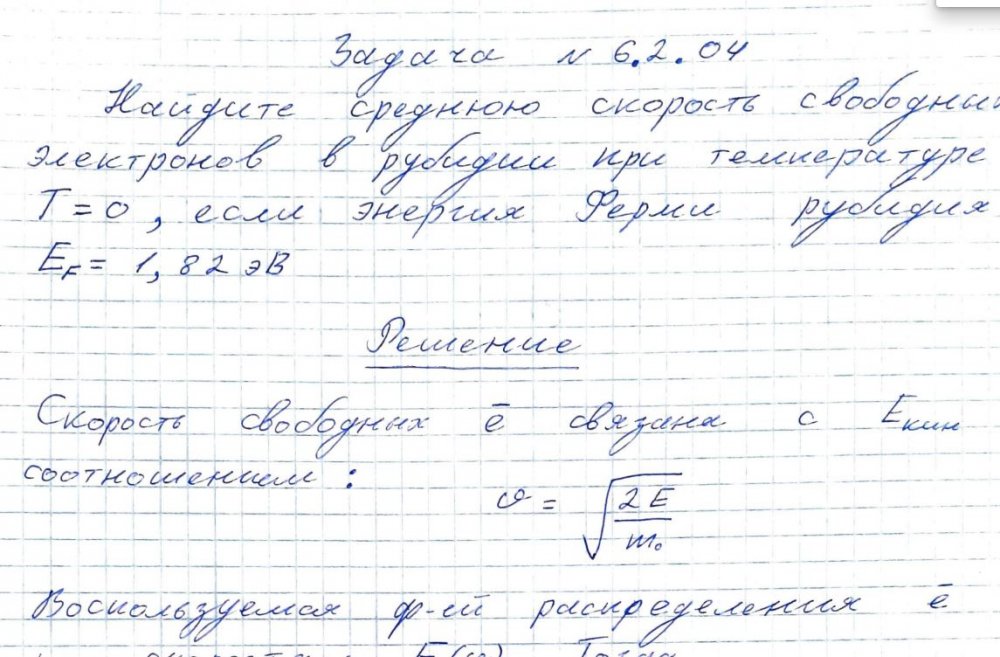 Задача N 6.2.04
Найдите среднюю скорость свободных
электронов в рубидии при температуре
T = 0, если энергия Ферми рубидия
E_F = 1,82 эВ
Решение
Скорость свободных ē связана с E_кин
соотношением:
υ = √(2E/m₀)
Воспользуемся ф-ей распределения ē
F(υ). Тогда